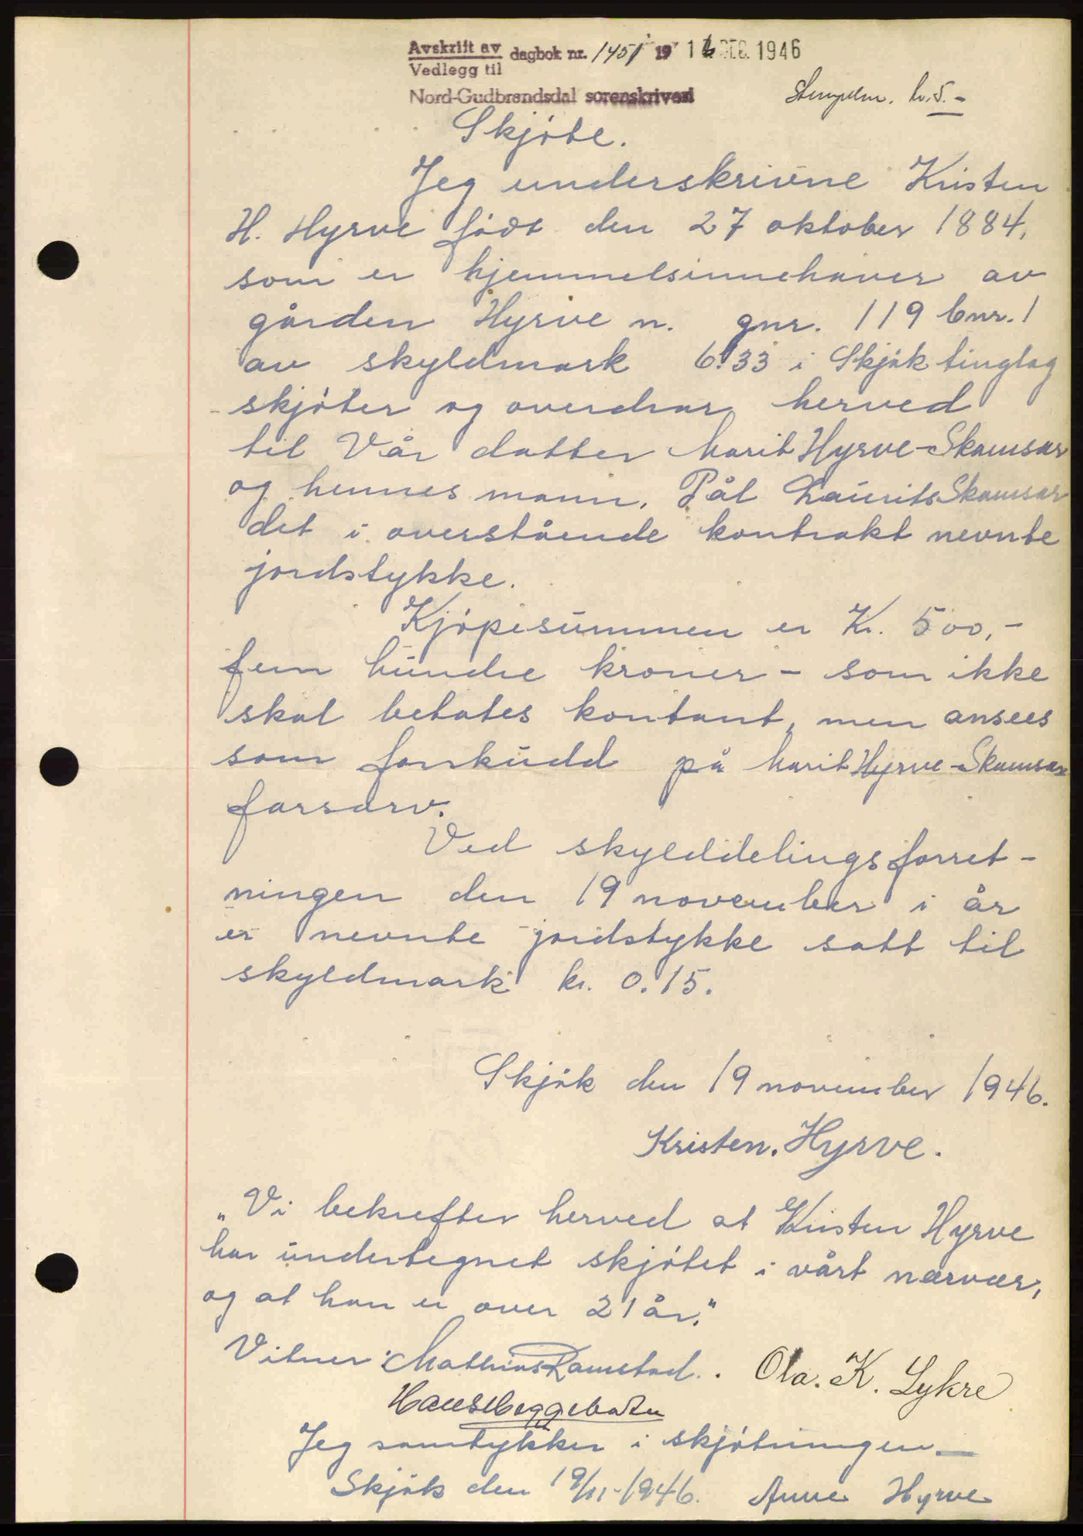 Avskrift av
Vedlegg til
dagbok nr. 1451 1946 16 DEC. 1946
Nord-Gudbrandsdal sorenskriveri
Stempelm. kr. 5.-
Skjöte.
Jeg underskrivne Kristen
H. Hyrve födt den 27 oktober 1884,
som er hjemmelsinnehaver av
gården Hyrve n. gnr. 119 bnr. 1
av skyldmark 6.33 i Skjåk tinglag
skjöter og overdrar herved
til Vår datter Marit Hyrve-Skamsar
og hennes mann, Pål Laurits Skamsar
det i overstående kontrakt nevnte
jordstykke.
Kjöpesummen er Kr. 500,-
fem hundre kroner - som ikke
skal betales kontant, men ansees
som forskudd på Marit Hyrve-Skamsar
farsarv.
Ved skylddelingsforret-
ningen den 19 november i år
er nevnte jordstykke satt til
skyldmark kr. 0.15.
Skjåk den 19 november 1946.
Kristen. Hyrve.
"Vi bekrefter herved at Kristen Hyrve
har undertegnet skjötet i vårt nærvær,
og at han er over 21 år."
Vitner: Mathias Ramstad. Ola. K. Lykre
Jeg samtykker i skjötningen
Skjåk den 19/11-1946. Anne Hyrve